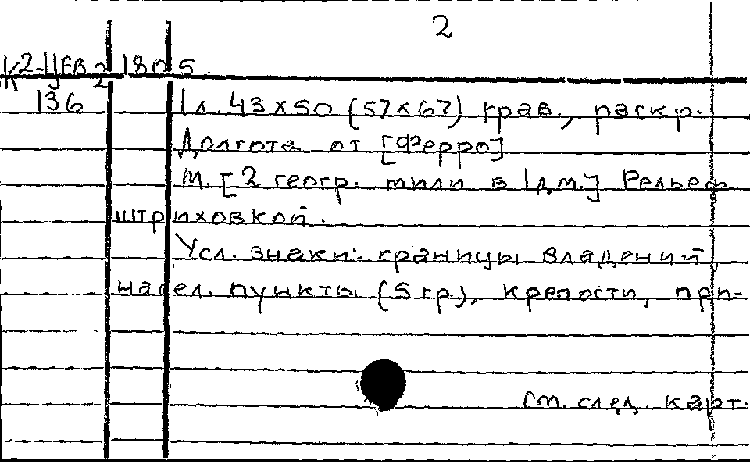 2
К2-Цев 2 1805
136 1 л. 43×50 (57×67) грав., раскр.
Долгота от [Ферро]
М. [2 геогр. мили в 1 д.м.] Рельеф
штриховкой.
Усл. знаки: границы владений,
насел. пункты (5 гр), крепости, при-
См. след. карт.